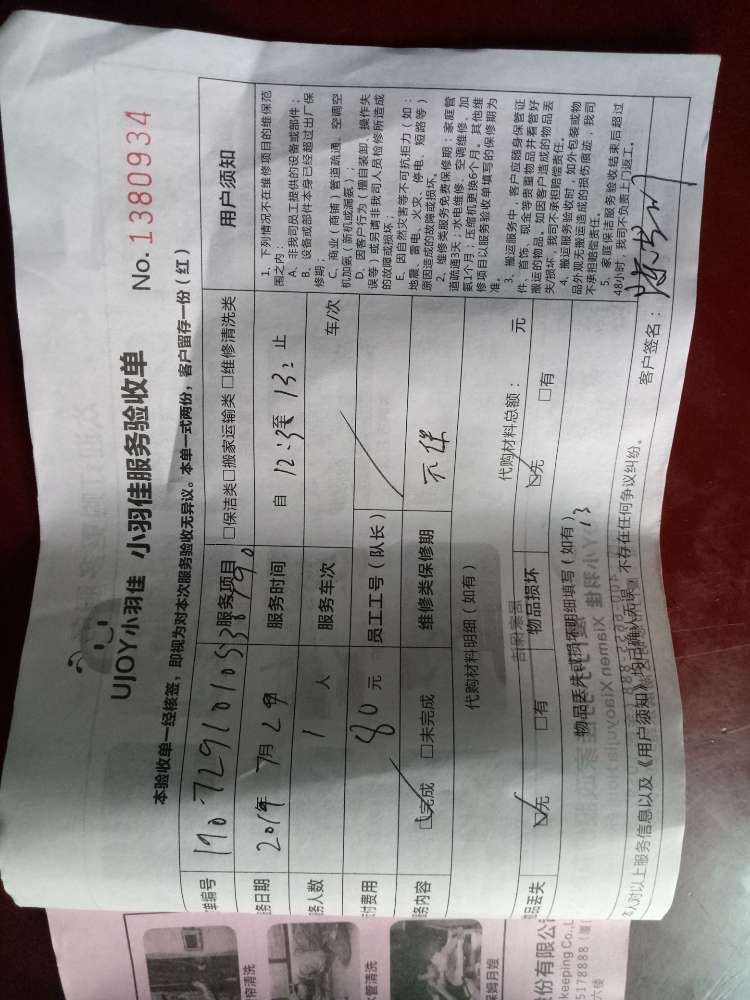 UJOY小羽佳 小羽佳服务验收单 No. 1380934
本验收单一经核签，即视为对本次服务验收无异议。本单一式两份，客户留存一份（红）
单编号 服务项目 □保洁类□搬家运输类 □维修清洗类
务日期 2019年 7月29 服务时间 自 12:3至 13: 止
务人数 1 人 服务车次 车/次
付费用 80 元 员工工号（队长）
务内容 ☑完成 □未完成 维修类保修期 不保
代购材料明细（如有） 代购材料总额： 元
品丢失 ☑无 □有 物品损坏 ☑无 □有
物品丢失或损坏明细填写（如有）
用户须知
1、下列情况不在维修项目的维保范
围之内：
A、非我司员工提供的设备或部件；
B、设备或部件本身已经超过出厂保
修期；
C、商业（商铺）管道疏通、空调空
机加氨（新机或漏氨）；
D、因客户行为（擅自装卸、操作失
误等）或另请非我司人员检修所造成
的故障或损坏；
E、因自然灾害等不可抗拒力（如：
地震、雷电、火灾、停电、短路等）
原因造成的故障或损坏。
2、维修类服务免费保修期：家庭管
道疏通3天；水电维修、空调维修、加
氨1个月；压缩机更换6个月。其他维
修项目以服务验收单填写的保修期为
准。
3、搬运服务中，客户应随身保管证
件、首饰、现金等贵重物品并看管好
搬运的物品。如因客户造成的物品丢
失/损坏，我司不承担赔偿责任。
4、搬运服务验收时，如外包装或物
品外观无搬运造成的损伤痕迹，我司
不承担赔偿责任。
5、家庭保洁服务验收结束后超过
48小时，我司不负责上门返工。
本人对以上服务信息以及《用户须知》均已确认无误，不存在任何争议纠纷。 客户签名：
帘清洗
水管清洗
保姆月嫂
份有限公司
keeping Co.,L
5178888（厦门
六楼